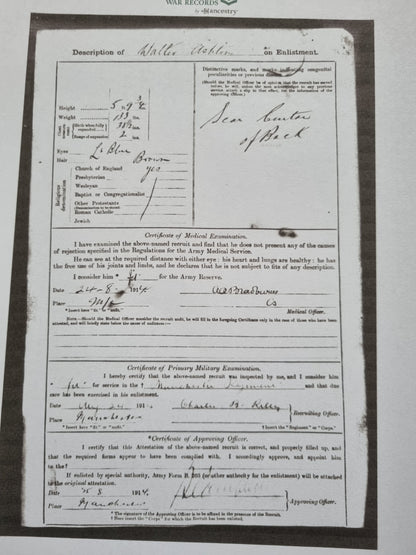 WAR RECORDS
by Ancestry
Description of Walter on Enlistment.
Distinctive marks, and marks indicating congenital
peculiarities or previous disease.
(Should the Medical Officer
Height 5 9
Weight 133
Chest measurement
Girth when fully expanded
Range of expansion 2
Eyes Lt Blue
Hair Brown
Scar Center
of Back
Religious denomination
Church of England yes
Presbyterian
Wesleyan
Baptist or Congregationalist
Other Protestants
(Denomination to be stated)
Roman Catholic
Jewish
Certificate of Medical Examination.
I have examined the above-named recruit and find that he does not present any of the causes
of rejection specified in the Regulations for the Army Medical Service.
He can see at the required distance with either eye; his heart and lungs are healthy; he has
the free use of his joints and limbs, and he declares that he is not subject to fits of any description.
I consider him * fit for the Army Reserve.
Date 24-8- 1914.
Place
Medical Officer.
* Insert here "fit" or "unfit."
NOTE.—Should the Medical Officer consider the recruit unfit, he will fill in the foregoing Certificate only in the case of those who have been
attested, and will briefly state below the cause of unfitness:—
Certificate of Primary Military Examination.
I hereby certify that the above-named recruit was inspected by me, and I consider him
* fit for service in the † Manchester Regiment and that due
care has been exercised in his enlistment.
Date Aug 24 191 Charles H. Kelly
Place Manchester
Recruiting Officer.
* Insert here "fit" or "unfit."
† Insert the "Regiment" or "Corps."
*Certificate of Approving Officer.
I certify that this Attestation of the above-named recruit is correct, and properly filled up, and
that the required forms appear to have been complied with. I accordingly approve, and appoint him
to the†
If enlisted by special authority, Army Form B. 203 (or other authority for the enlistment) will be attached
to the original attestation.
Date 8 1914.
Place Manchester
Approving Officer.
* The signature of the Approving Officer is to be affixed in the presence of the Recruit.
† Here insert the "Corps" for which the Recruit has been enlisted.